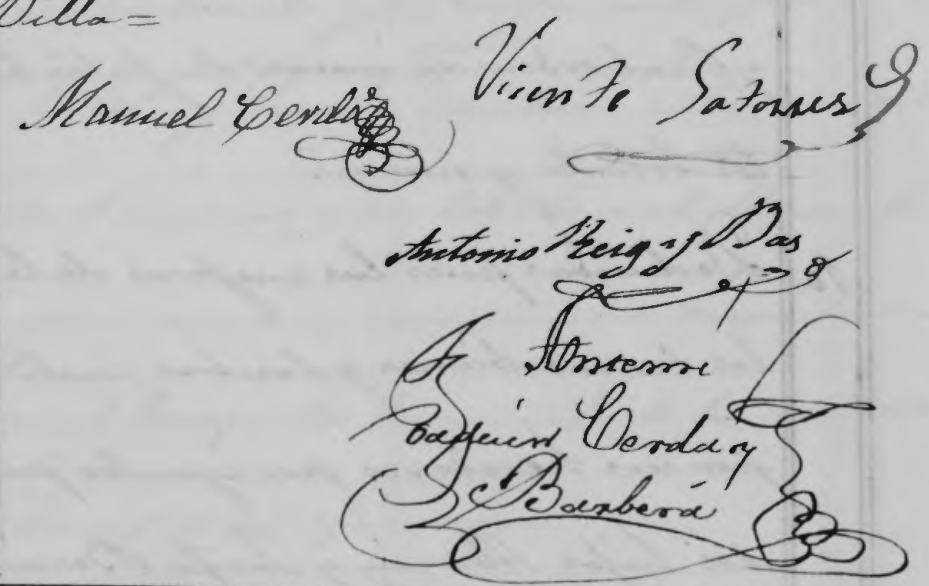 Villa =
Manuel Cerdá
Vicente Satorres
Antonio Reig y Bas
Ante mi
Joaquin Cerdá y
Barberá